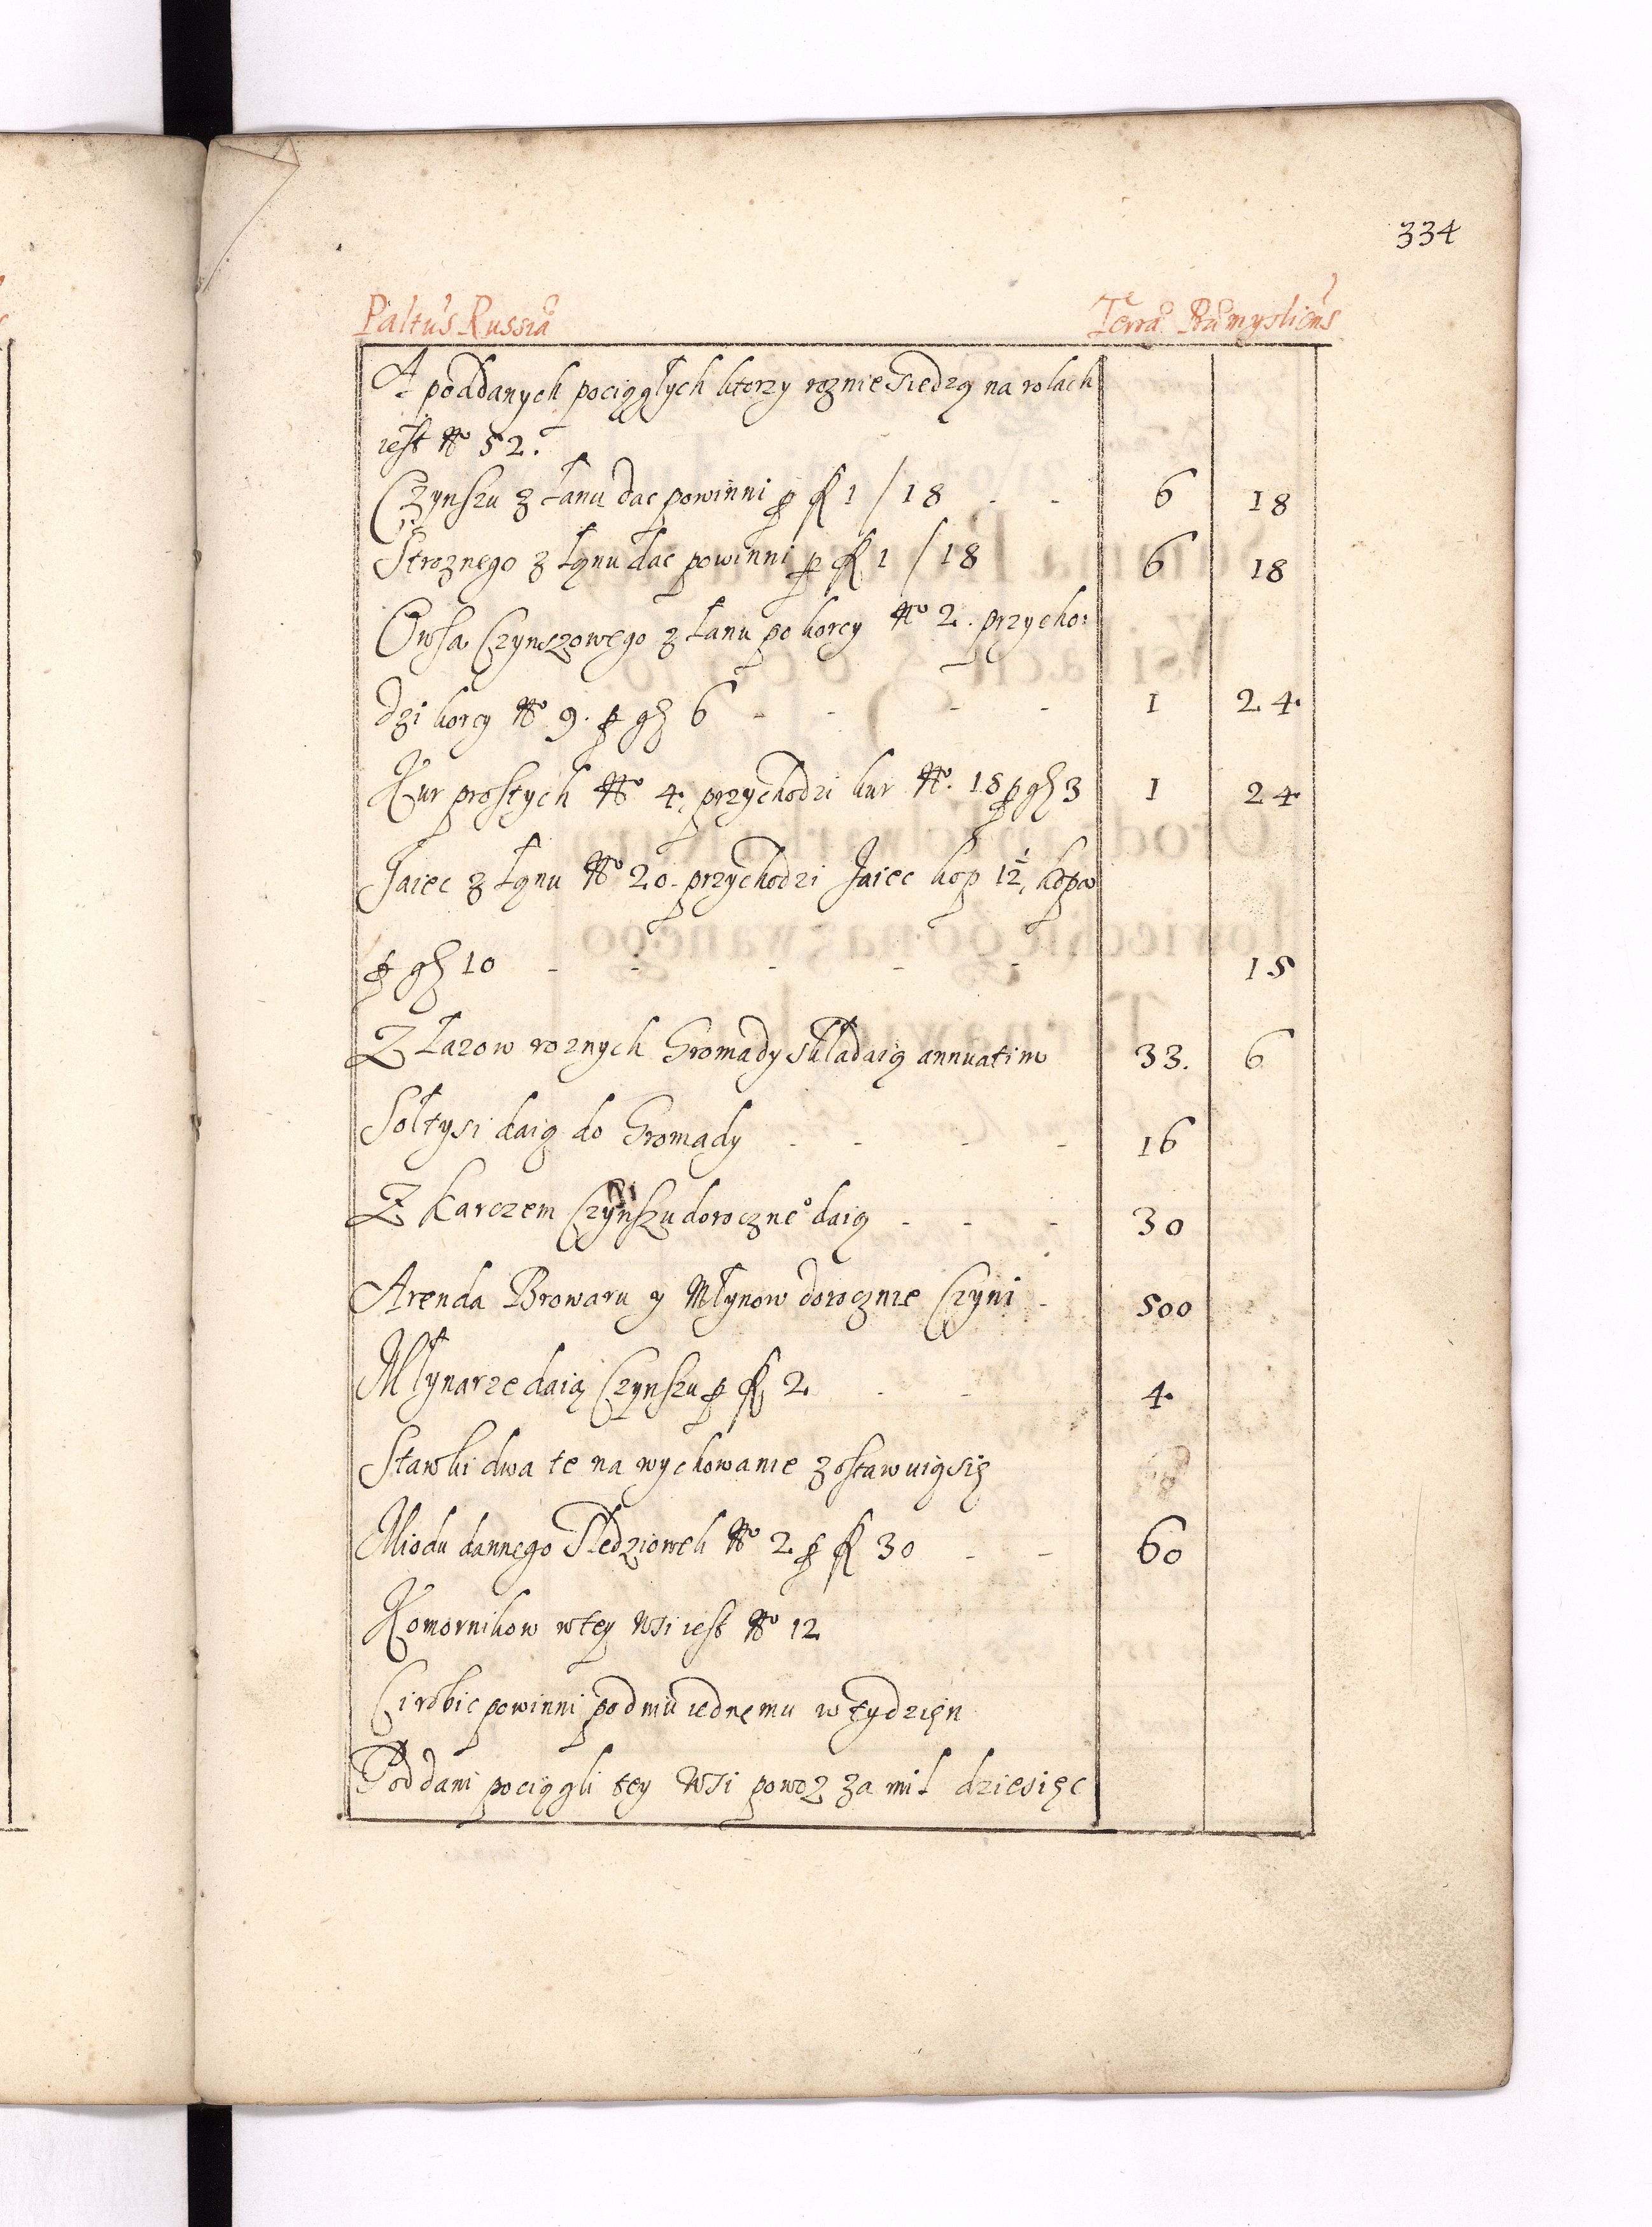 334
Paltus Russiæ Terræ Præmysliens
A poddanych pociągłych ktorzy roznie siedzą na rolach
iest No 52.
Czynszu z łanu dac powinni p fl 1 / 18 - - 6 18
Stroznego z łanu dac powinni p fl 1 / 18 6 18
Owsa Czynszowego z łanu po korcy No 2. przycho:
dzi korcy No 9. p gß 6 - - - - 1 24
Kur prostych No 4. przychodzi kur No. 18 p gß 3 1 24
Jaiec z łąnu No 20. przychodzi Jaiec kop 1½, kopa
p gß 10 - - - - - 15
Z Łazow roznych Gromady składaią annuatim 33. 6
Sołtysi daią do Gromady - - - - 16
Z Karczem Czynszu doroczneo daią - - - 30
Arenda Browaru y Młynow dorocznie Czyni - 500
Młynarze daią Czynszu p fl 2 - - 4
Stawki dwa te na wychowanie zostawuią się
Miodu dannego Sledziowek No 2 p fl 30 - - 60
Komornikow wtey wsi iest No 12
Ci robic powinni po dniu iednemu w tydzięn
Poddani pociągli tey wsi powoz za mil dziesięc